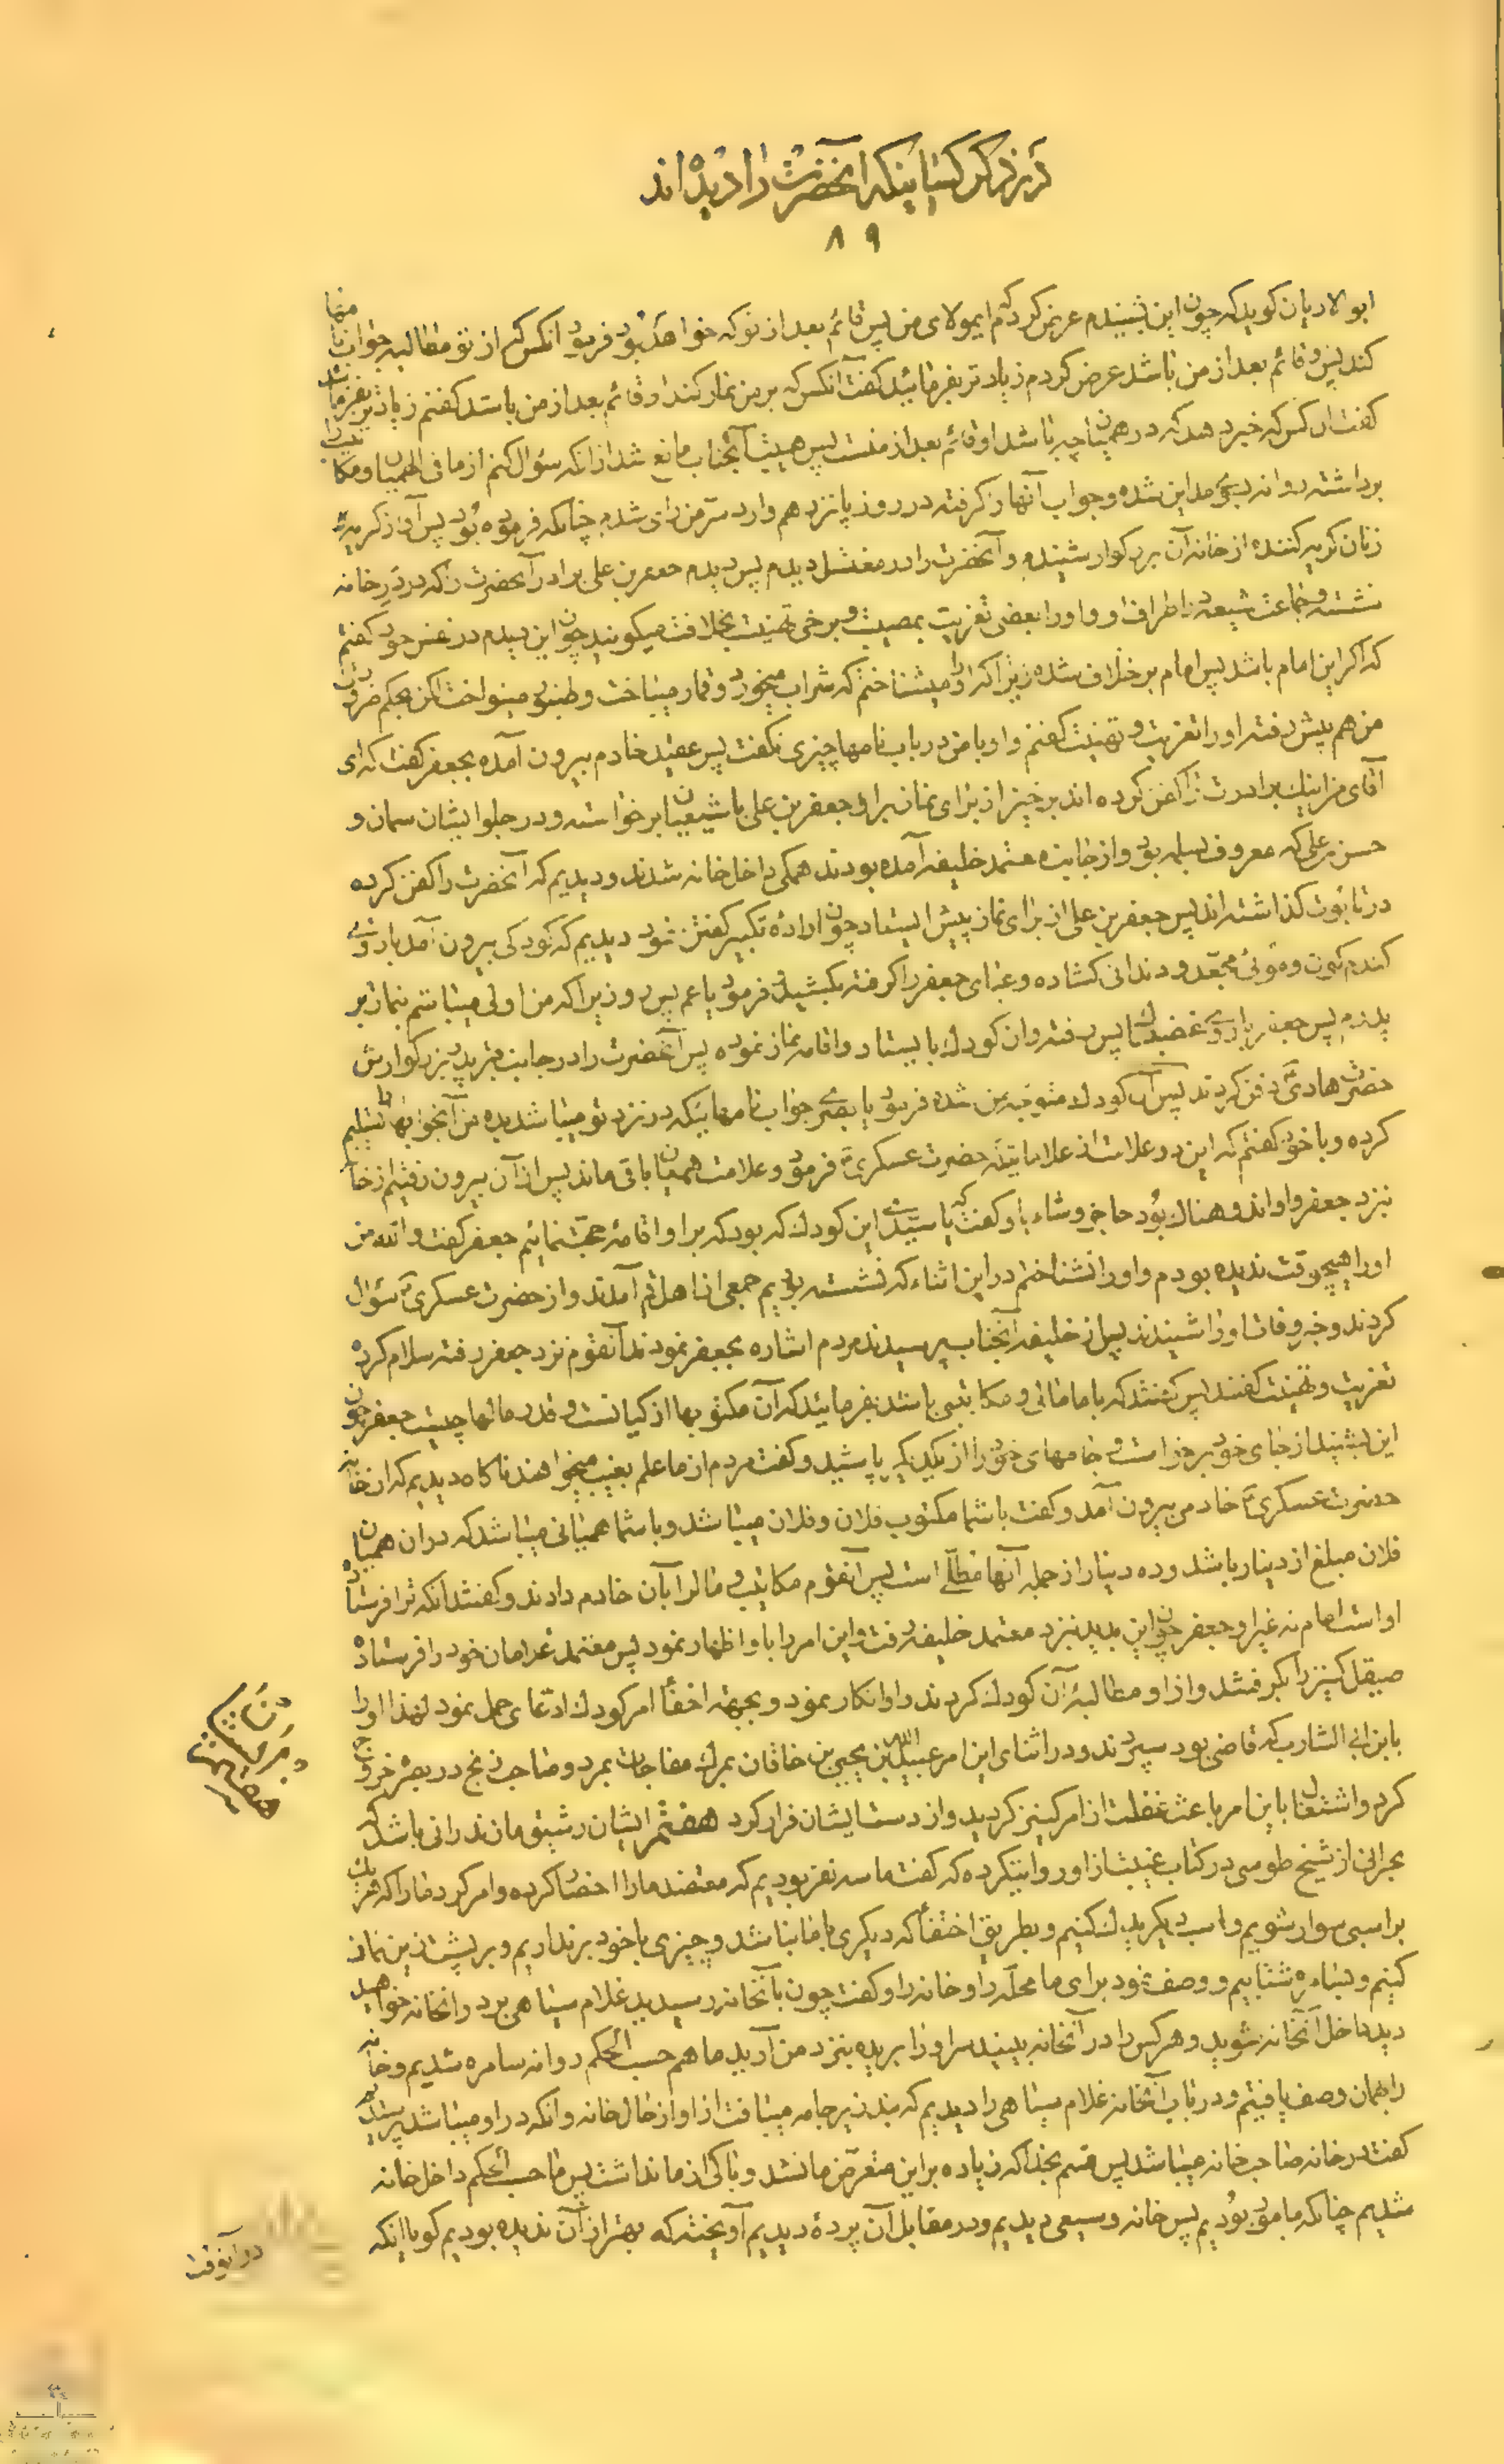 در ذکر کسانیکه انحضرت را دیده اند
۸۹
ابو الادیان کوید که چون این بشنیدم عرض کردم که ایمولای من پس قائم بعد از تو که خواهد بود فرمود انکس که از تو مطالبه جواب نامها
کند پس او قائم بعد از من باشد عرض کردم زیادتر بفرمائید کفت آنکس که بر من نماز کند او قائم بعد از من باشد کفتم زیادتر بفرمائید
کفت ان کس که خبر دهد که در همیان چه باشد او قائم بعد از منست پس هیبت آنجناب مانع شد از انکه سؤال کنم از ما فی الهمیان و مکاتیب را
برداشته روانه بسوی مداین شده و جواب آنها را کرفته در روز پانزدهم وارد سرّ من رای شدم چنانکه فرموده بود پس آواز کریه
زنان کریه کننده از خانه آن بزرکوار شنیدم و آنحضرت را در مغتسل دیدم پس دیدم جعفر بن علی برادر آنحضرت را که در در خانه
نشسته و جماعت شیعه در اطراف او و او را بعضی تعزیت بمصیبت و برخی تهنیت بخلافت میکویند چون این دیدم در نفس خود کفتم
که اکر این امام باشد پس امام بر خلاف شده زیرا که او را میشناختم که شراب میخورد و قمار میباخت و طنبور مینواخت لکن بحکم ضرورت
من هم پیش رفته او را تعزیت و تهنیت کفتم و او با من در باب نامها چیزی نکفت پس عقید خادم بیرون آمده بجعفر کفت که ای
آقای من اینک برادرت را کفن کرده اند برخیز از برای نماز بر او جعفر بن علی با شیعیان برخواسته و در جلو ایشان سمان و
حسن بن علی که معروف بسلمه بود و از جانب معتمد خلیفه آمده بودند همکی داخل خانه شدند و دیدیم که آنحضرت را کفن کرده
در تابوت کذاشته اند پس جعفر بن علی از برای نماز پیش ایستاد چون اراده تکبیر کفتن نمود دیدیم که کودکی بیرون آمد با روی
کندم کون و موئی مجعّد و دندانی کشاده و عبای جعفر را کرفته بکشید و فرمود یا عم پس رو زیرا که من اولی میباشم بنماز بر
پدرم پس جعفر با روی غضبناک پس رفته و ان کودک بایستاد و اقامه نماز نموده پس آنحضرت را در جانب قبر پدر بزرکوارش
حضرت هادی دفن کردند پس آن کودک متوجه من شده فرمود یا بصری جواب نامهائیکه در نزد تو میباشد بده من آنجوابها را تسلیم
کرده و با خود کفتم که این دو علامت از علاماتیکه حضرت عسکری فرمود و علامت همیان باقی ماند پس از آن بیرون رفتیم از خانه
نزد جعفر و او اندوهناک بود حاجز وشاء باو کفت که یا سیّدی این کودک که بود که بر او اقامه حجّت نمائیم جعفر کفت والله من
او را هیچوقت ندیده بودم و او را نشناختم در این اثناء که نشسته بودیم جمعی از اهل قم آمدند و از حضرت عسکری سؤال
کردند و خبر وفات او را شنیدند پس از خلیفه آنجناب پرسیدند مردم اشاره بجعفر نمودند آنقوم نزد جعفر رفته سلام کرده
تعزیت و تهنیت کفتند پس کفتند که با ما مالی و مکاتیبی باشد بفرمائید که آن مکتوبها از کیانست و قدر مالها چیست جعفر چون
این بشنید از جای خود برخواست و جامهای خود را از یکدیکر پاشید و کفت مردم از ما علم بغیب میخواهند ناکاه دیدیم که از خانه
حضرت عسکری خادمی بیرون آمد و کفت با شما مکتوب فلان و فلان میباشد و با شما همیانی میباشد که در ان همیان
فلان مبلغ از دینار باشد و ده دینار از جمله آنها مطلّی است پس آنقوم مکاتیب و مال را بآن خادم دادند و کفتند آنکه ترا فرستاده
او است امام نه غیر او جعفر چون این بدید نزد معتمد خلیفه رفت و این امر را باو اظهار نمود پس معتمد غلامان خود را فرستاده
صیقل کنیز را بکرفتند و از او مطالبه آن کودک کردند و او انکار نمود و بجهة اخفاء امر کودک ادّعای حمل نمود لهذا او را
بابن ابی الشارب که قاضی بود سپردند و در اثنای این امر عبیدالله بن یحیی بن خاقان بمرک مفاجات بمرد و صاحب زنج در بصره خروج
کرد و اشتغال باین امر باعث غفلت از امر کنیز کردید و از دست ایشان فرار کرد هفتم ایشان رشیق مازندرانی باشد که
بحرانی از شیخ طوسی در کتاب غیبت از او روایت کرده که کفت ما سه نفر بودیم که معتضد ما را احضار کرده و امر کرد ما را که هر یک
بر اسبی سوار شویم و اسب دیکر یدک کنیم و بطریق اختفاء که دیکری با ما نباشد و چیزی با خود برنداریم و بر پشت زین نماز
کنیم و بسامره شتابیم و وصف نمود برای ما محلّه را و خانه را و کفت چون بآنخانه رسیدید غلام سیاهی بر در آنخانه خواهید
دید داخل آنخانه شوید و هر کس را در آنخانه ببینید سر او را بریده بنزد من آرید ما هم حسب الحکم روانه سامره شدیم و خانه
را بهمان وصف یافتیم و در باب آنخانه غلام سیاهی را دیدیم که بند زیر جامه میبافت از او از حال خانه و انکه در او میباشد پرسیدیم
کفت در خانه صاحب خانه میباشد پس قسم بخدا که زیاده بر این متعرّض ما نشد و باکی از ما نداشت پس ما حسب الحکم داخل خانه
شدیم چنانکه مأمور بودیم پس خانه وسیعی دیدیم و در مقابل آن پرده دیدیم آویخته که بهتر از آن ندیده بودیم کویا اینکه
در آنوقت